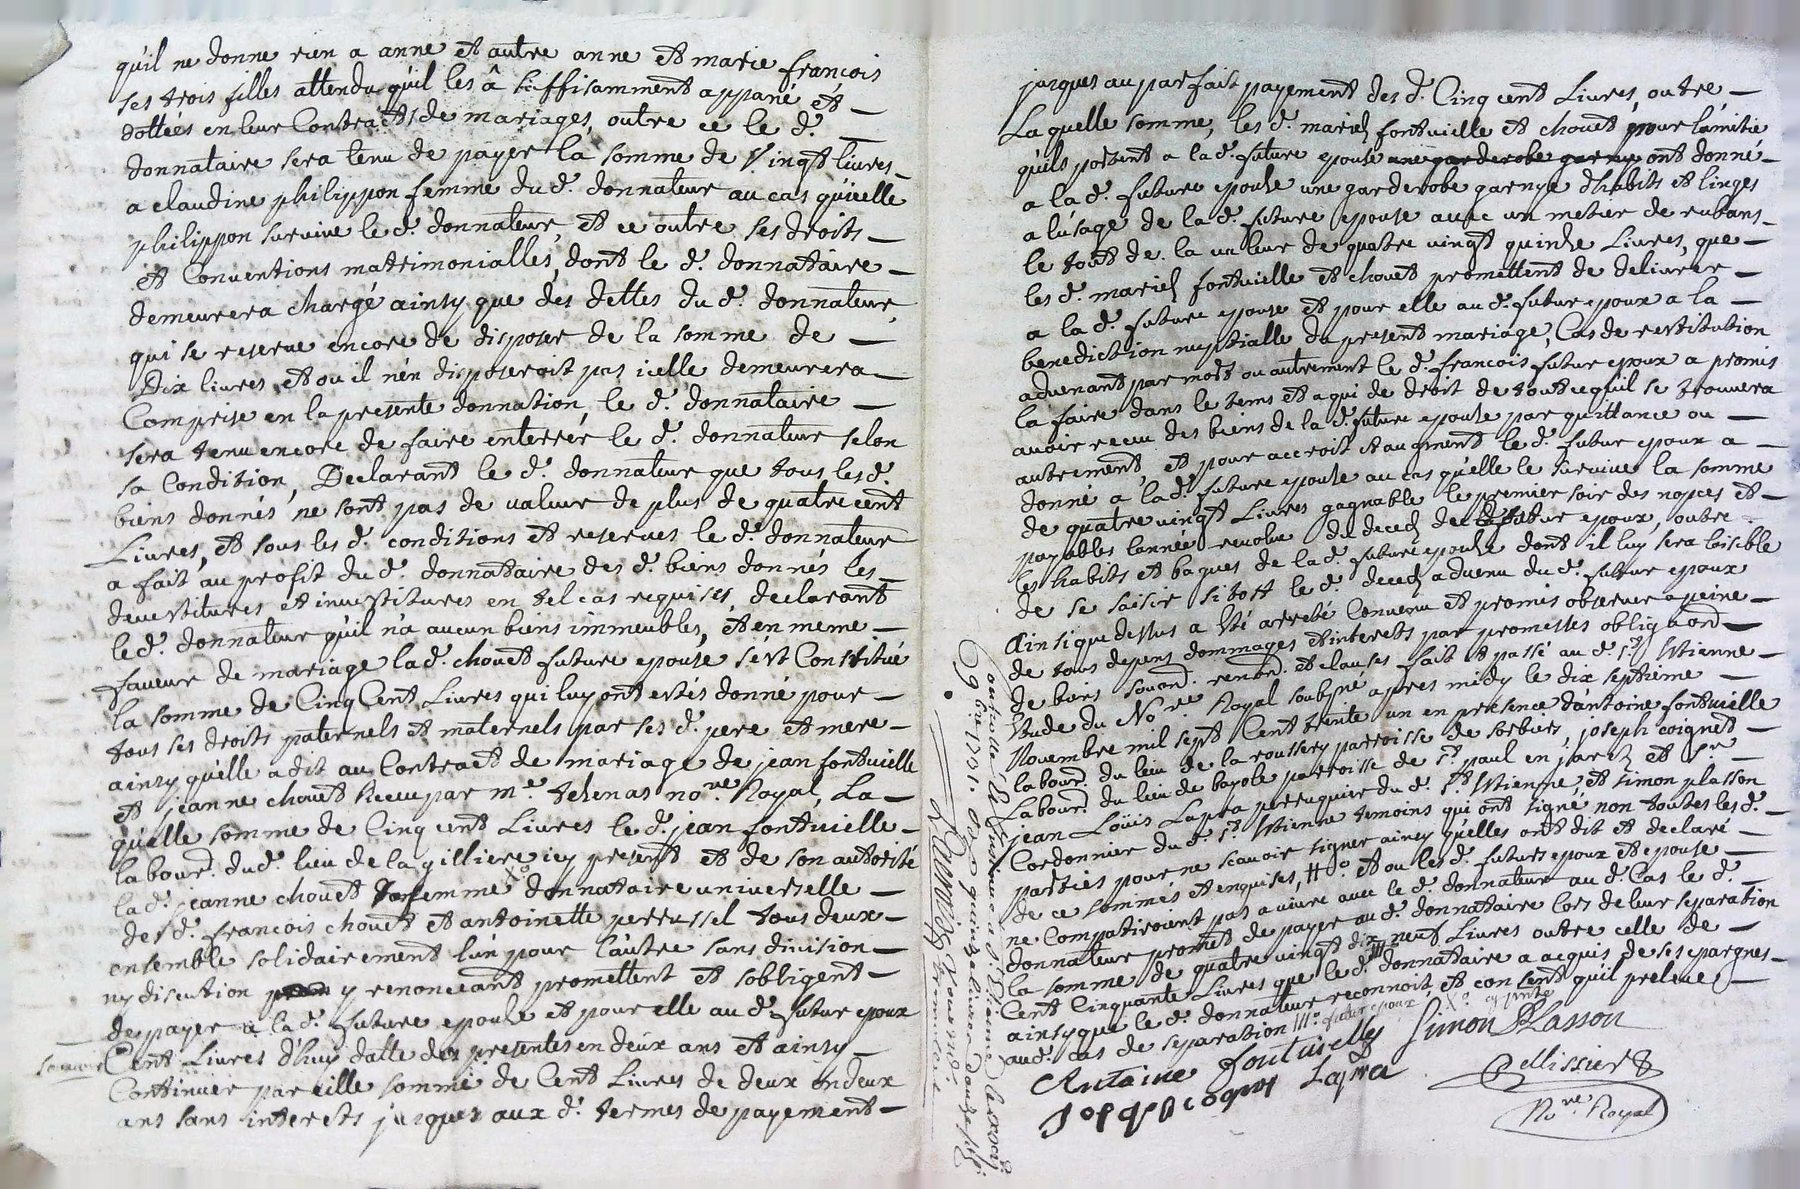 qu'il ne donne rien a anne et autre anne et marie francois
ses trois filles attendu qu'il les â suffisamment appané et
dottées en leur Contracts de mariages, outre ce le d.
donnataire sera tenu de payer la somme de Vingt livres
a claudine philippon femme du d. donnateur au cas qu'icelle
philippon survive le d. donnateur, et ce outre ses droits
et Conventions matrimonialles, dont le d. donnataire
demeurera chargé ainsy que des dettes du d. donnateur,
qui se reserve encore de disposer de la somme de
Dix livres et ou il n'en disposeroit pas icelle demeurera
Comprise en la presente donnation, le d. donnataire
sera tenu encore de faire enterrer le d. donnateur selon
sa Condition, Declarant le d. donnateur que tous les d.
biens donnés ne sont pas de valeur de plus de quatre cent
Livres, et sous les d. conditions et reserves le d. donnateur
a fait au profit du d. donnataire des d. biens donnés les
devestitures et investitures en tel cas requises, declarant
le d. donnateur qu'il n'a aucun biens immeubles, et en meme
faveur de mariage la d. chouet future epouse s'est Constitué
la somme de Cinq Cent Livres qui luy ont estés donné pour
tous ses droits paternels et maternels par ses d. pere et mere
ainsy qu'elle a dit au Contract de mariage de jean fontvielle
et jeanne chouet Receu par me. tezenas nore. Royal, La
qu'elle somme de Cinq cent Livres le d. jean fontvielle
labour. du d. lieu de la gilliere icy present et de son autorité
la d. jeanne chouet sa femme donnataire universelle
des d. francois chouet et antoinette perrussel tous deux
ensemble solidairement l'un pour l'autre sans division
ny discution y renonceant promettent et s'obligent
de payer a la d. future epouse et pour elle au d. futur epoux
scavoir Cent Livres d'huy datte des presentes en deux ans et ainsy
Continuer pareille somme de Cent Livres de deux en deux
ans sans interets jusques aux d. termes de payement
jusques au parfait payement des d. Cinq cent Livres, outre
Laquelle somme, les d. mariés fontvielle et chouet pour l'amitié
qu'ils portent a la d. future epouse une garderobe garnye ont donné
a la d. future epouse une garderobe garnye d'habits et linges
a l'usage de la d. future epouse avec un metier de rubans
le tout de la valeur de quatre vingt quinze Livres, que
les d. mariés fontvielle et chouet promettent de delivrer
a la d. future epouse et pour elle au d. futur epoux a la
benediction nuptialle du present mariage, Cas de restitution
advenant par mort ou autrement le d. francois futur epoux a promis
la faire dans le tems et a qui de droit de tout ce qu'il se trouvera
avoir receu des biens de la d. future epouse par quittance ou
autrement, et pour accroit et augment le d. futur epoux a
donné a la d. future epouse au cas qu'elle le survive la somme
de quatre vingt Livres gagnable le premier soir des nopces et
payables l'année revolue du decés du d. futur epoux, outre
les habits et bagues de la d. future epouse dont il luy sera loisible
de se saisir sitost le d. decés advenu du d. futur epoux
Ainsi que dessus a été arreté Convenu et promis observer a peine
de tous depens dommages et interets par promesses obligaon.
de biens soumon. renon. et clauses fait et passé au d. st Etienne
Etude du Nore. Royal soubsné apres midy le dix septieme
Novembre mil sept Cent trente un en presence d'antoine fontvielle
labour. du lieu de la roussery parroisse de sorbiers, joseph coignet
Labour. du lieu de bayole parroisse de st. paul en jarets et sr.
jean Loüis Lapra perruquier du d. st. Etienne, et simon plasson
Cordonnier du d. st Etienne temoins qui ont signé, non toutes les d.
parties pour ne scavoir signer ainsy qu'elles ont dit et declaré
de ce sommés et enquises, et ou les d. futurs epoux et epouse
ne Compatiroient pas a vivre avec le d. donnateur au d. Cas le d.
donnateur promet de payer au d. donnataire lors de leur separation
la somme de quatre vingt dix neuf Livres outre celle de
Cent Cinquante Livres que le d. donnataire a acquis de ses epargnes
ainsy que le d. donnateur reconnoit et consent qu'il preleve
au d. cas de separation futur epoux
Antoine fontvielle Simon Plasson
Joseph cognet Lapra
Pellissier
Nore. Royal
Controllé à St Etienne le
9bre 1731. quinze livres douze sols